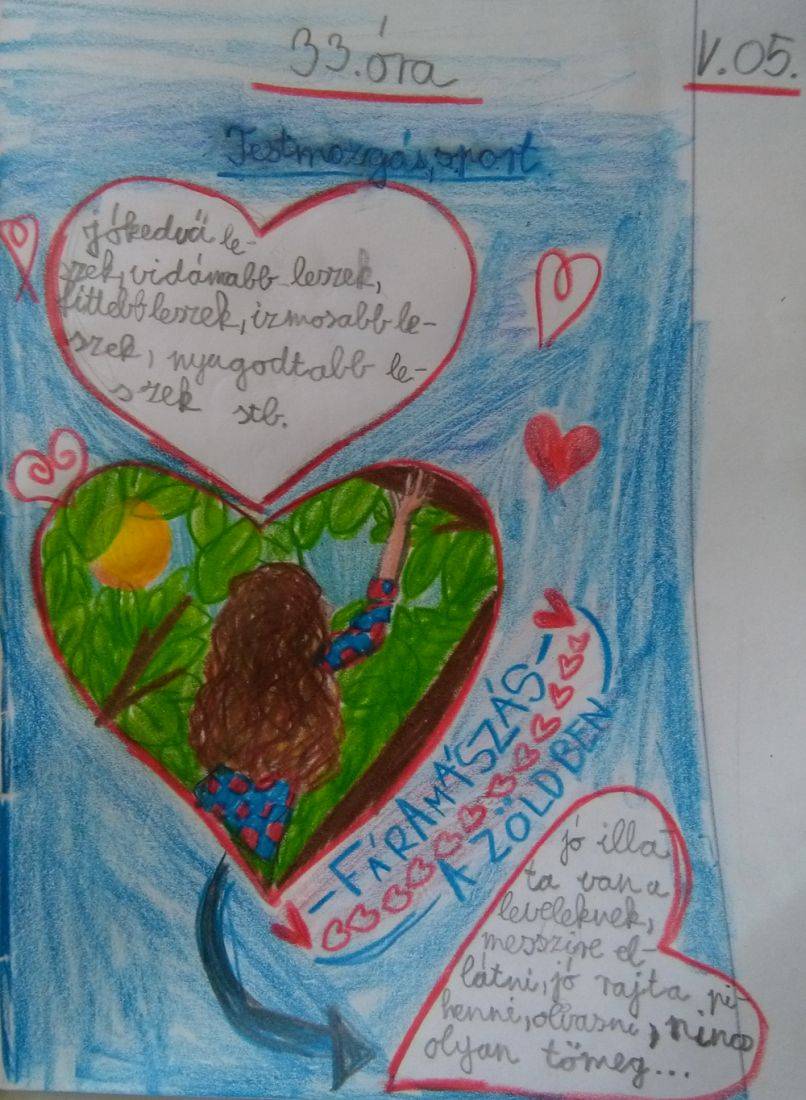 33. óra
V. 05.
Testmozgás, sport
jókedvű le-
szek, vidámabb leszek,
fittebb leszek, izmosabb le-
szek, nyugodtabb le-
szek stb.
- FÁRAMÁSZÁS -
A ZÖLDBEN
jó illa
ta van a
leveleknek,
messzire el-
látni, jó rajta pi-
henni, olvasni, nincs
olyan tömeg...